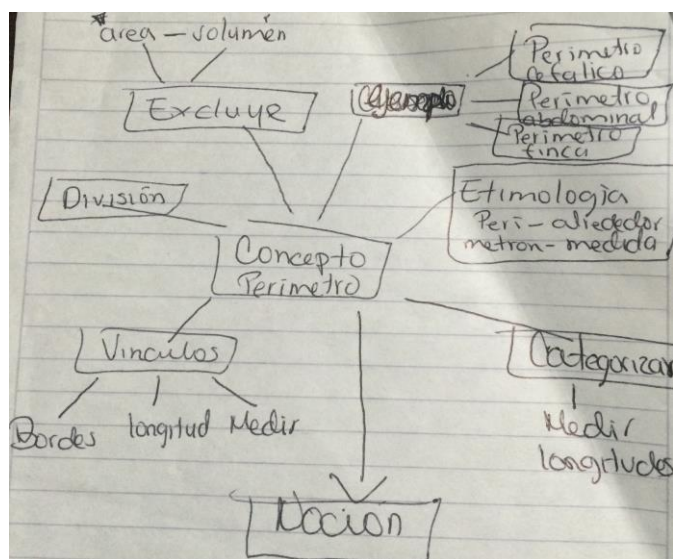 area - volumén
Excluye
Ejemplo
Perimetro
cefalico
Perimetro
abdominal
Perimetro
finca
División
Etimologia
Peri - alrededor
metron - medida
Concepto
Perimetro
Vinculos
Bordes longitud Medir
Categorizar
Medir
longitudes
Nocion